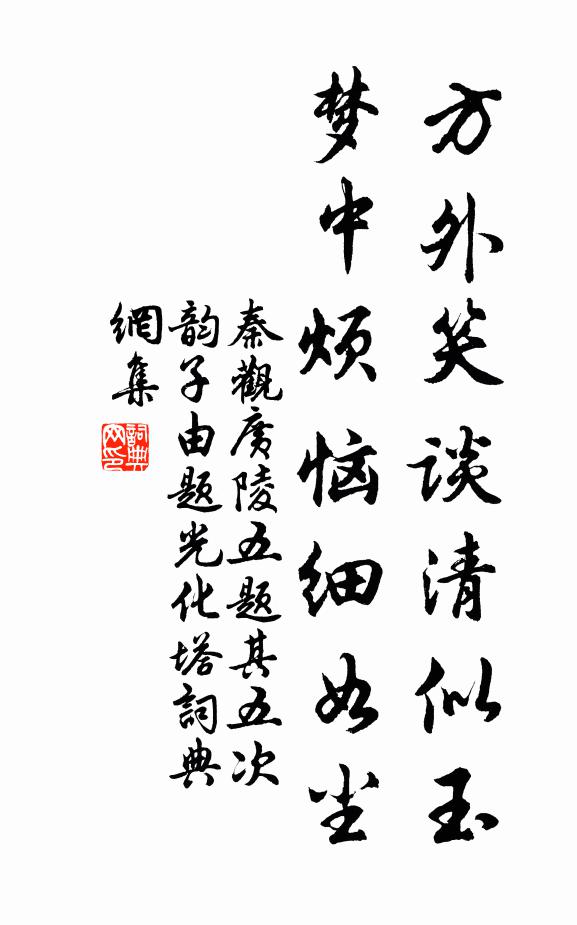 方外笑谈清似玉
梦中烦恼细如尘
秦觀廣陵五题其五次
韵子由题光化塔詞典
網集
詞典
网印